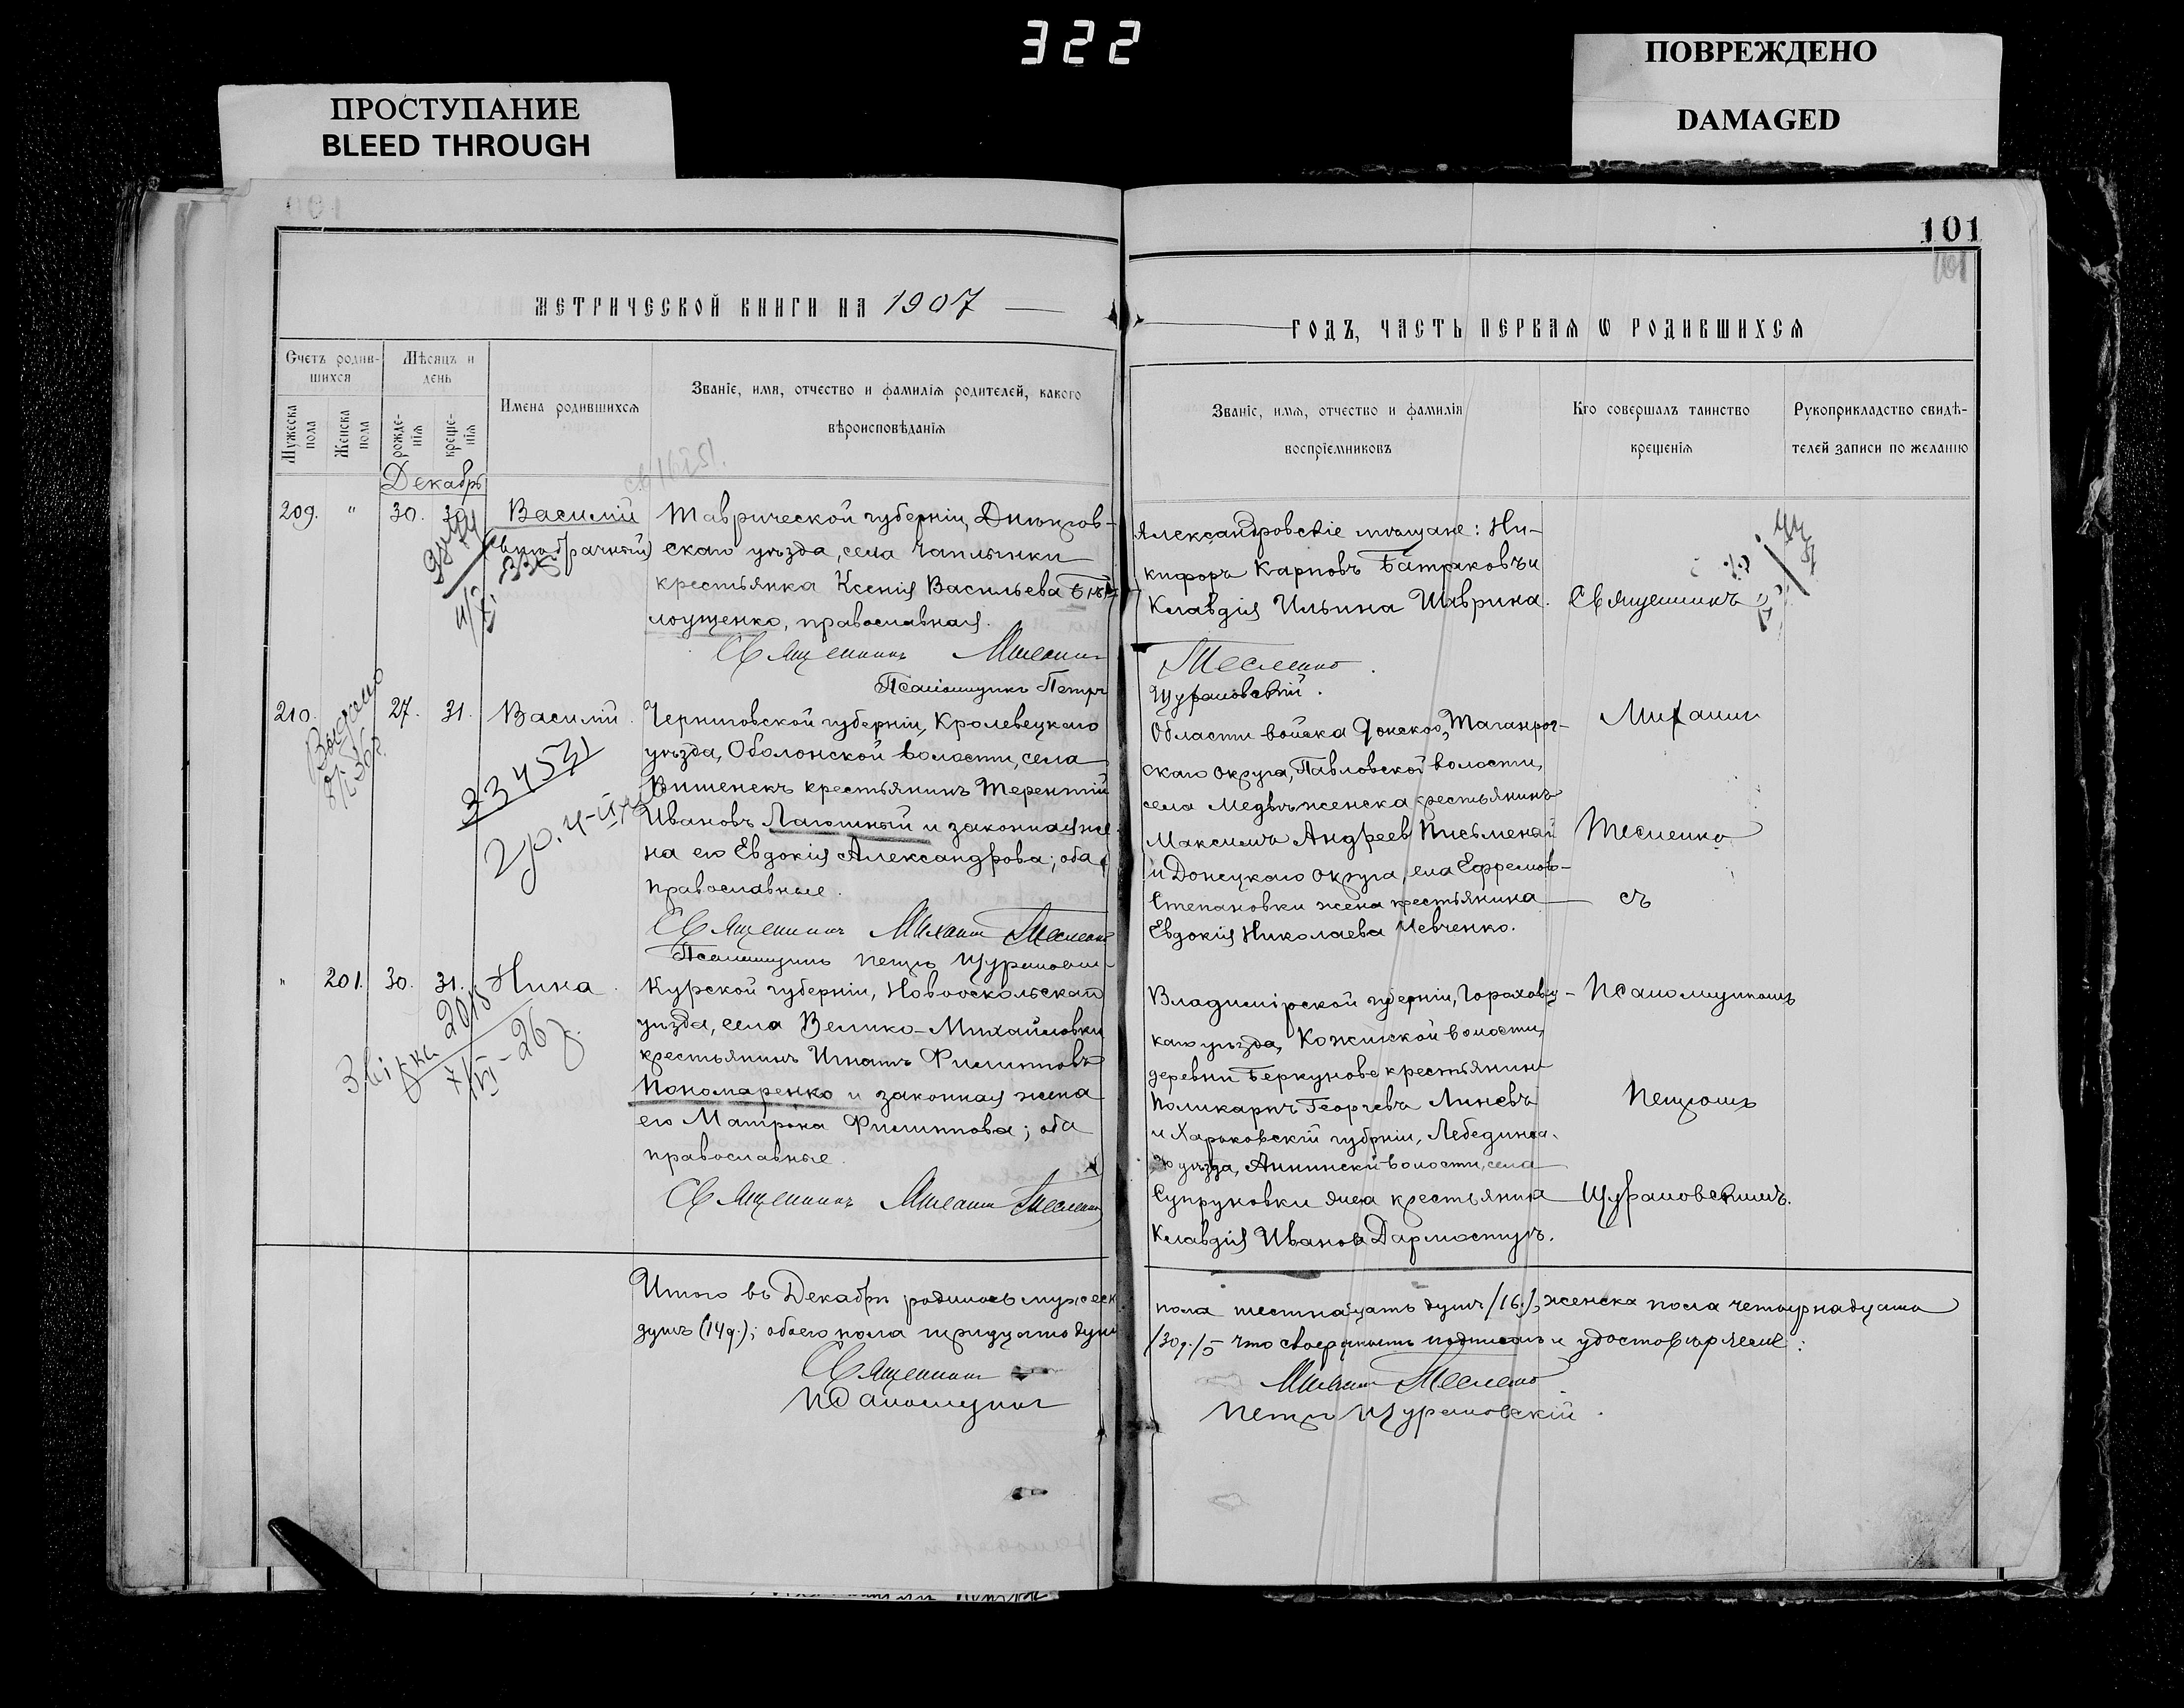 322
ПРОСТУПАНИЕ
BLEED THROUGH
ПОВРЕЖДЕНО
DAMAGED
101
МЕТРИЧЕСКОЙ КНИГИ НА 1907
ГОДЪ, ЧАСТЬ ПЕРВАЯ Ѡ РОДИВШИХСЯ
Счетъ родив-
шихся
Мужеска
пола
Женска
пола
Мѣсяцъ и
день
рожде-
нія
креще-
нія
Имена родившихся
Званіе, имя, отчество и фамилія родителей, какого
вѣроисповѣданія
Званіе, имя, отчество и фамилія
воспріемниковъ
Кто совершалъ таинство
крещенія
Рукоприкладство свидѣ-
телей записи по желанію
Декабрь
209. " 30. 30. Василій
(внѣбрачный)
Таврической губерніи, Днѣпров-
скаго уѣзда, села Чаплынки
крестьянка Ксенія Васильева Бѣ-
лоущенко, православная.
Священникъ Михаилъ
Псаломщикъ Петръ
Александровскіе мѣщане: Ни-
кифоръ Карповъ Батраковъ и
Клавдія Ильина Шаврина.
Тесленко.
Щурановскій.
Священникъ
Михаилъ
Тесленко
съ
Псаломщикомъ
Петромъ
Щурановскимъ.
210. 27. 31. Василій.
Выдано
33453
Черниговской губерніи, Кролевецкаго
уѣзда, Оболонской волости, села
Вишенекъ крестьянинъ Терентій
Ивановъ Лагошный и законная же-
на его Евдокія Александрова; оба
православные.
Священникъ Михаилъ Тесленко
Псаломщикъ Петръ Щурановскій
Области войска Донского, Таганрог-
скаго округа, Павловской волости,
села Медвѣженска крестьянинъ
Максимъ Андреев Письменай
и Донецкаго округа, села Ефремов-
Степановки жена крестьянина
Евдокія Николаева Шевченко.
" 201. 30. 31. Нина.
Звірка 2018
Курской губерніи, Новооскольскаго
уѣзда, села Велико-Михайловки
крестьянинъ Игнатъ Филипповъ
Пономаренко и законная жена
его Матрона Филиппова; оба
православные.
Священникъ Михаилъ Тесленко
Владимірской губерніи, Гороховец-
каго уѣзда, Кожинской волости,
деревни Беркунове крестьянинъ
Поликарпъ Георгіевъ Линевъ
и Харьковскій губрніи, Лебединска-
го уѣзда, Аннинской волости, села
Супруновки жена крестьянина
Клавдія Иванова Дармостукъ.
Итого въ Декабрѣ родилось мужеск
пола шестнадцать душъ /16./, женска пола четырнадцать
душъ (14д.); обоего пола тридцать душъ
/30д./ что своеручнымъ подписомъ и удостовѣряемъ:
Священникъ
Михаилъ Тесленко
Псаломщикъ
Петръ Щурановскій.